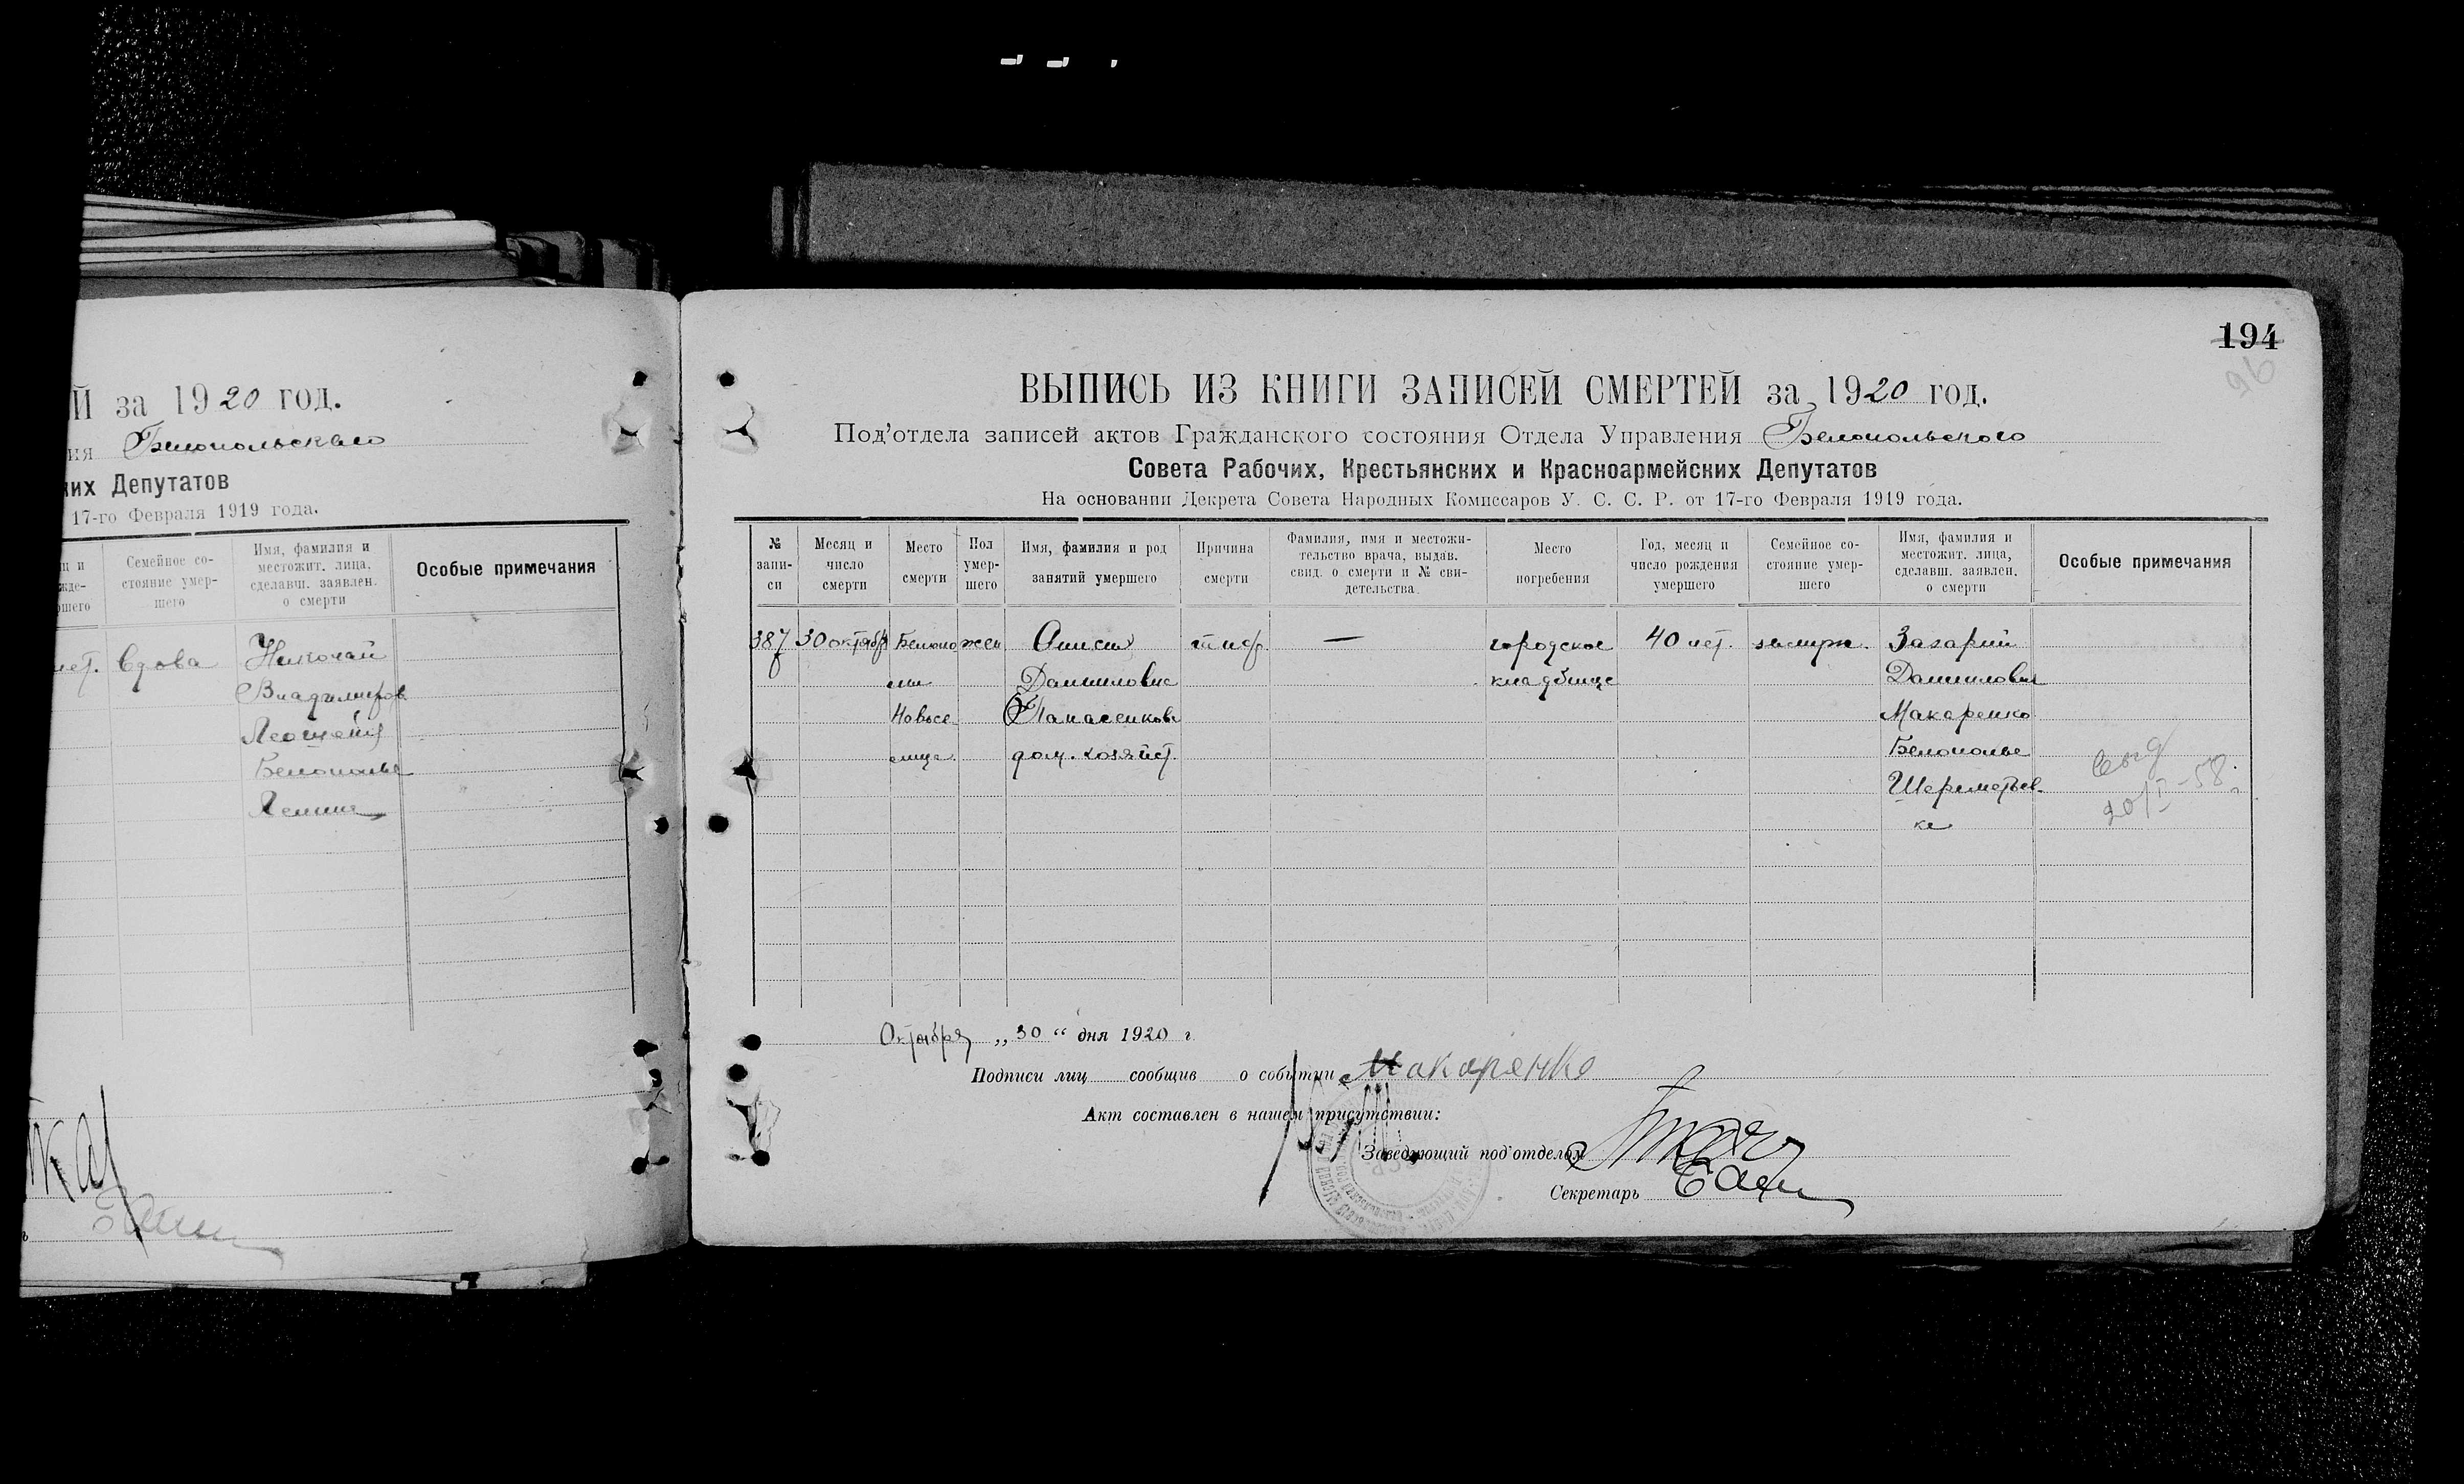 Й за 1920 год.
ия Белопольского
ких Депутатов
17-го Февраля 1919 года.
Семейное со-
стояние умер-
шего
Имя, фамилия и
местожит. лица,
сделавш. заявлен.
о смерти
Особые примечания
лет. Вдова Николай
Владимиров
Белополье
194
96
ВЫПИСЬ ИЗ КНИГИ ЗАПИСЕЙ СМЕРТЕЙ за 1920 год.
Под’отдела записей актов Гражданского состояния Отдела Управления Белопольского
Совета Рабочих, Крестьянских и Красноармейских Депутатов
На основании Декрета Совета Народных Комиссаров У. С. С. Р. от 17-го Февраля 1919 года.
№
запи-
си
Месяц и
число
смерти
Место
смерти
Пол
умер-
шего
Имя, фамилия и род
занятий умершего
Причина
смерти
Фамилия, имя и местожи-
тельство врача, выдав.
свид. о смерти и № сви-
детельства.
Место
погребения
Год, месяц и
число рождения
умершего
Семейное со-
стояние умер-
шего
Имя, фамилия и
местожит. лица,
сделавш. заявлен.
о смерти
Особые примечания
387 30 октябр Белопо жен тиф — городское 40 лет. замуж. Захарий
Данииловна кладбище Даниилович
Новосе Панасенкова Макаренко
лица дом. хозяйст. Белополье
Шереметьев-
ка
20/I-58.
Октября „30“ дня 1920 г
Подписи лиц сообщив о событии Макаренко
Акт составлен в нашем присутствии:
Заведующий под'отделом
Секретарь